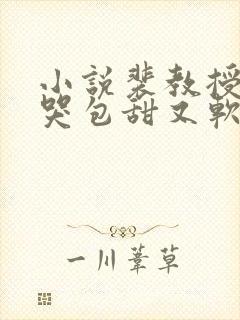 小說裴教授
哭包甜又軟
一川葦草